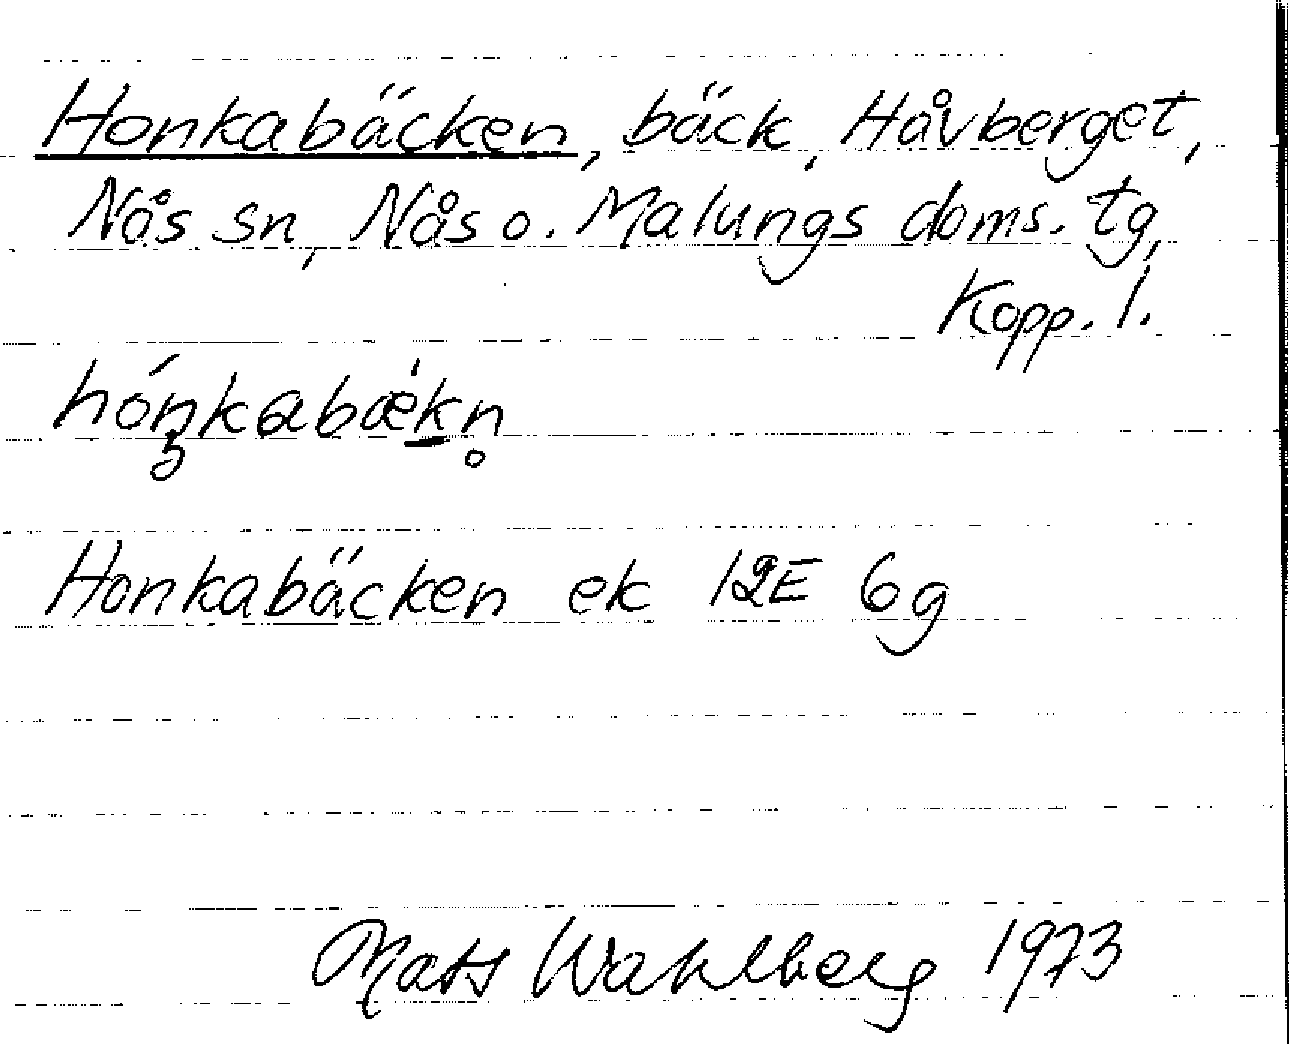 Honkabäcken, bäck, Håvberget,
Nås sn, Nås o. Malungs doms. tg,
Kopp. l.
hóŋkabæ̀kn̥
Honkabäcken ek 12E 6g
Mats Wahlberg 1973